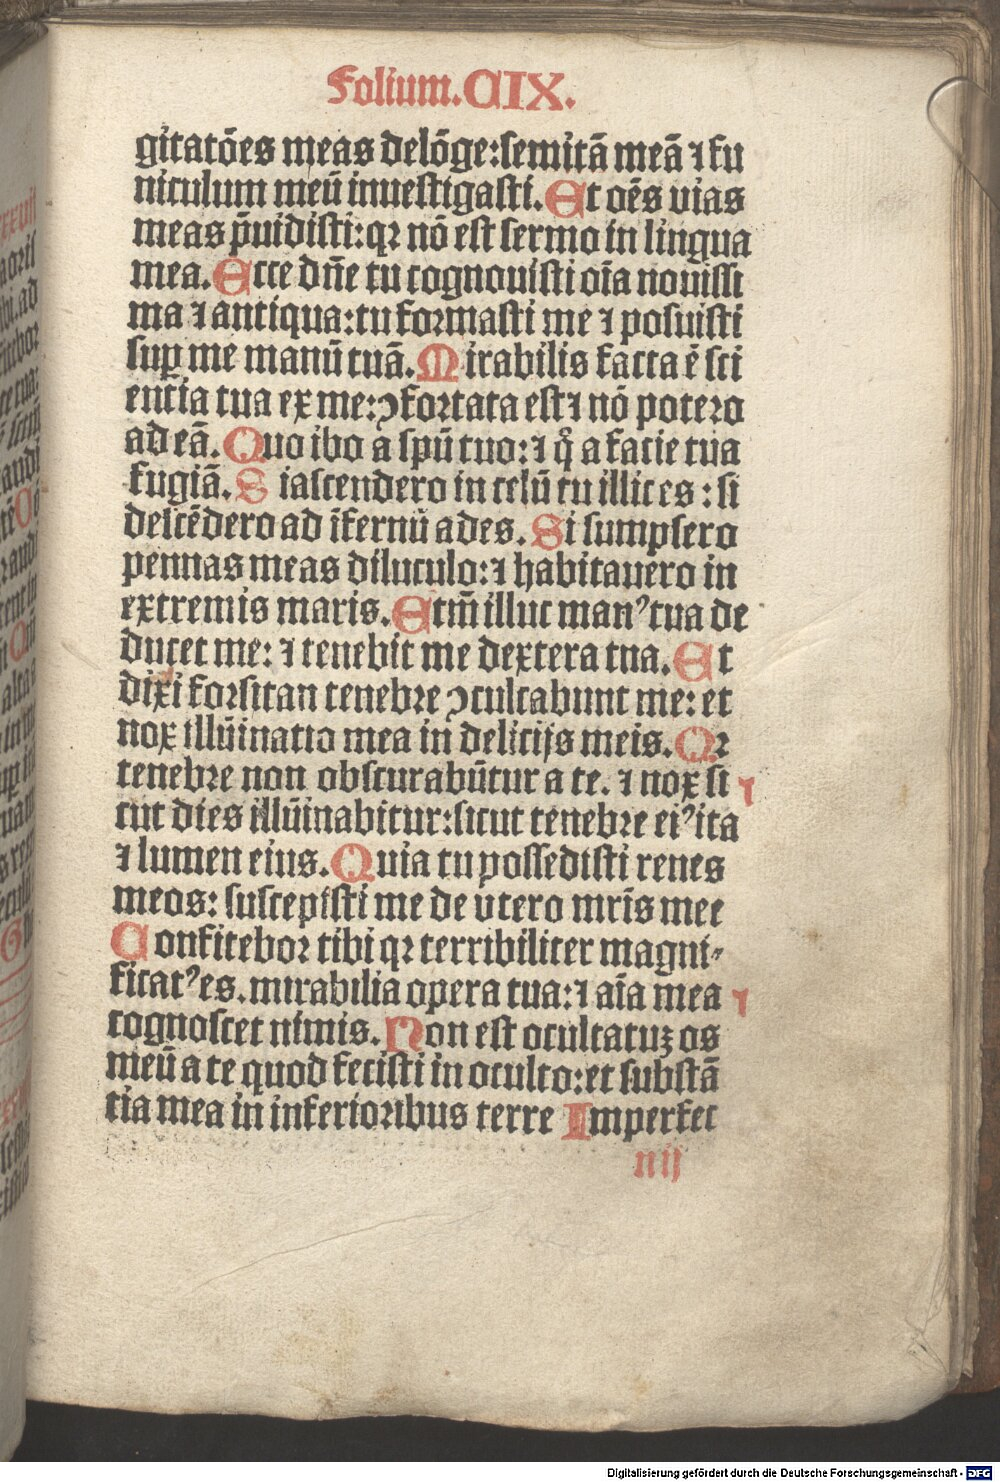 Folium.CIX.
gitatões meas delõge:semitã meã ⁊ fu
niculum meũ inuestigasti.Et oẽs vias
meas p̃uidisti:qꝛ nõ est sermo in lingua
mea.Ecce dñe tu cognouisti oĩa nouissi
ma ⁊ antiqua:tu formasti me ⁊ posuisti
suꝑ me manũ tuã.Mirabilis facta ẽ sci
entia tua ex me:ꝯfortata est ⁊ nõ potero
ad eã.Quo ibo a spũ tuo:⁊ q̊ a facie tua
fugiã.Si ascendero in celũ tu illic es:si
descẽdero ad ĩfernũ ades.Si sumpsero
pennas meas diluculo:⁊ habitauero in
extremis maris.Etm̃ illuc manꝰ tua de
ducet me:⁊ tenebit me dextera tua.Et
dixi forsitan tenebre ꝯculcabunt me:et
nox illũinatio mea in delicijs meis.Qꝛ
tenebre non obscurabũtur a te.⁊ nox si
cut dies illũinabitur:sicut tenebre eiꝰ ita
⁊ lumen eius.Quia tu possedisti renes
meos:suscepisti me de vtero mr̃is mee
Confitebor tibi qꝛ terribiliter magni-
ficatꝰ es.mirabilia opera tua:⁊ aĩa mea
cognoscet nimis.Non est ocultatuʒ os
meũ a te quod fecisti in oculto:et substã
tia mea in inferioribus terre Imperfec
nij
Digitalisierung gefördert durch die Deutsche Forschungsgemeinschaft - DFG